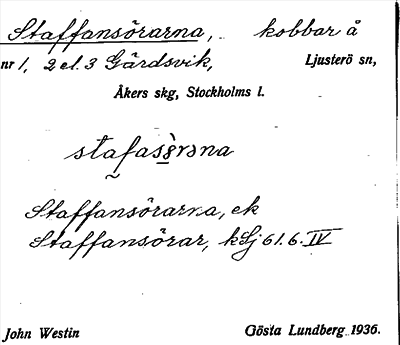 Staffansörarna, kobbar å
nr 1, 2 el. 3 Gärdsvik, Ljusterö sn,
Åkers skg, Stockholms l.
Staffansörarna, ek
Staffansörar, kLj 61.6.IV
John Westin Gösta Lundberg 1936.